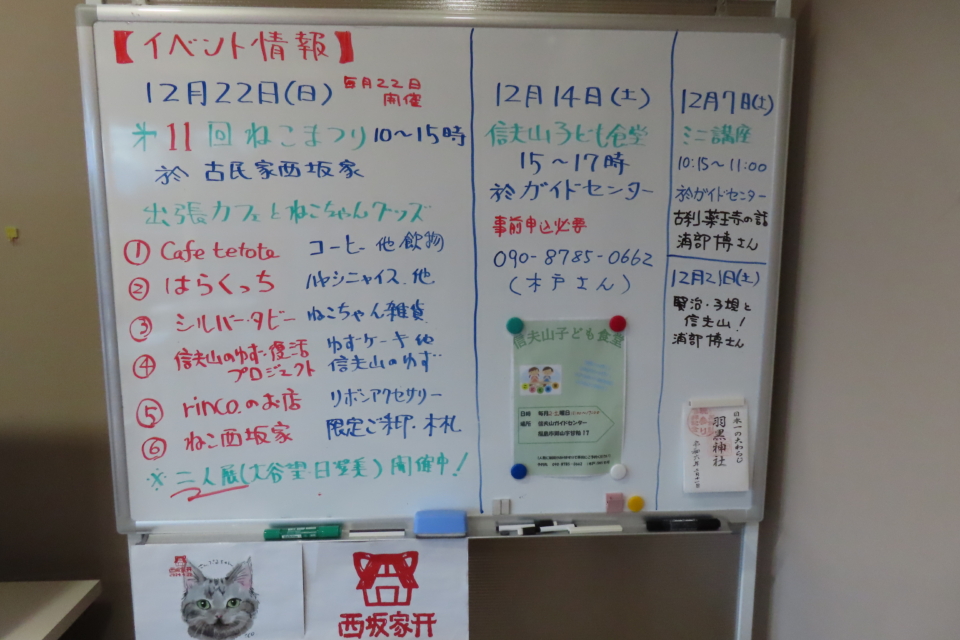 【イベント情報】
12月22日(日) 毎月22日開催
第11回ねこまつり 10〜15時
於 古民家西坂家
出張カフェとねこちゃんグッズ
① Cafe tetote コーヒー他飲物
② はらくっち ハヤシニャイス.他
③ シルバー・タビー ねこちゃん雑貨
④ 信夫山のゆず・復活プロジェクト ゆずケーキ他 信夫山のゆず
⑤ rinco.のお店 リボンアクセサリー
⑥ ねこ西坂家 限定ご朱印・木札
※ 二人展(大谷望・日望美)開催中!
12月14日(土)
信夫山子ども食堂
15〜17時
於ガイドセンター
事前申込必要
090-8785-0662
(木戸さん)
信夫山子ども食堂
日時 毎月
場所 信夫山ガイドセンター
12月7日(土)
ミニ講座
10:15〜11:00
於ガイドセンター
古刹薬王寺の話
浦部博さん
12月21日(土)
賢治・子規と
信夫山!
浦部博さん
日本一の大わらじ
羽黒神社
西坂家
西坂家